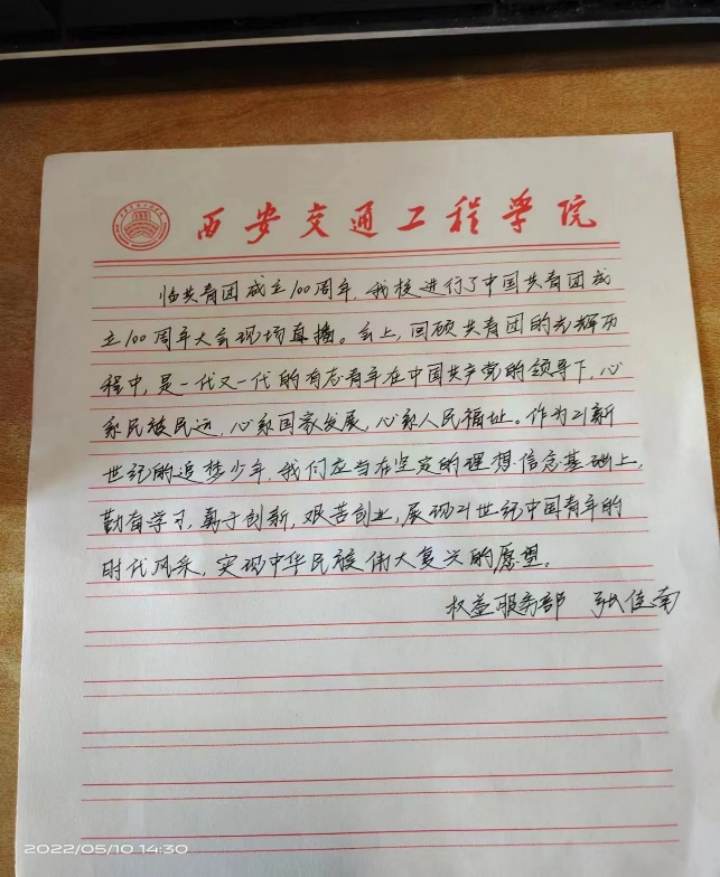 西安交通工程学院
临共青团成立100周年,我校进行了中国共青团成
立100周年大会现场直播。会上,回顾共青团的光辉历
程中,是一代又一代的有志青年在中国共产党的领导下,心
系民族民运,心系国家发展,心系人民福址。作为21新
世纪的追梦少年,我们应当在坚定的理想信念基础上,
勤奋学习,勇于创新,艰苦创业,展现21世纪中国青年的
时代风采,实现中华民族伟大复兴的愿望。
权益服务部 张佳南
2022/05/10 14:30